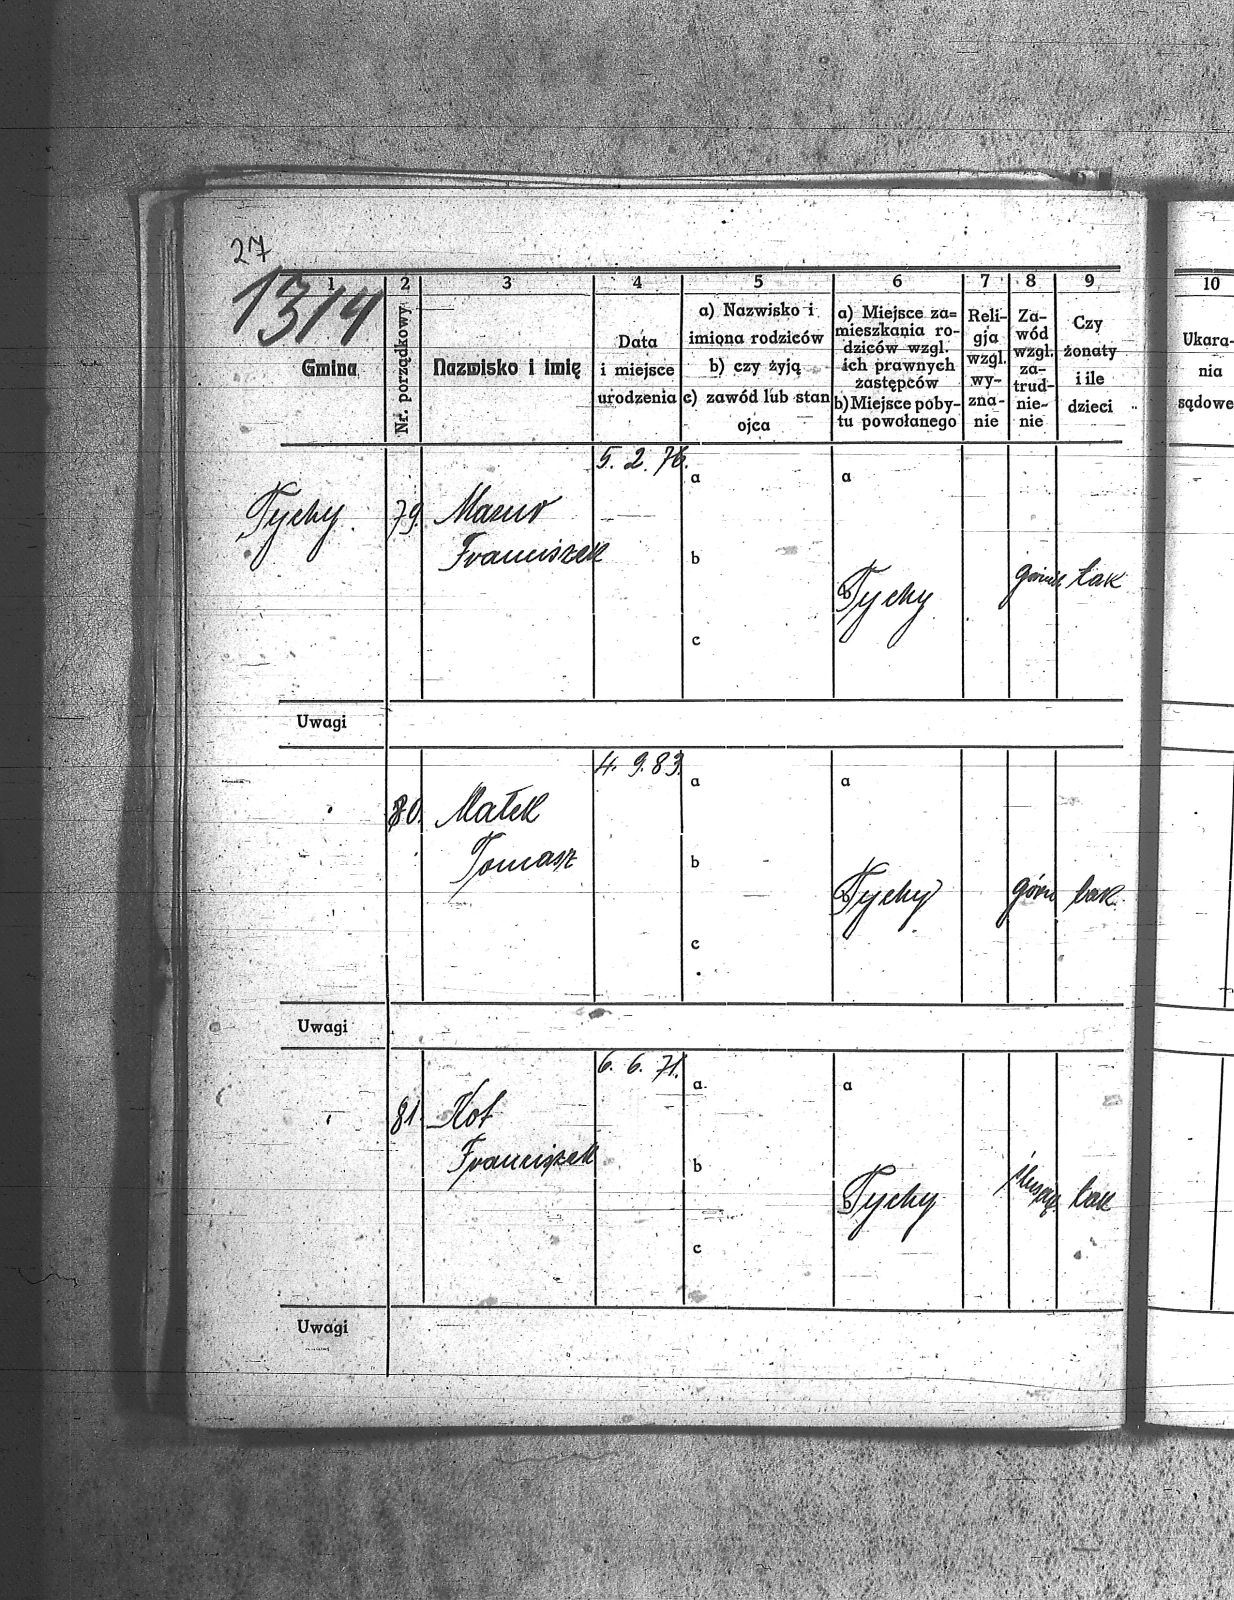 27
1314
1
2
3
4
5
6
7
8
9
10
Gmina
Nr. porządkowy
Nazwisko i imię
Data
i miejsce
urodzenia
a) Nazwisko i
imiona rodziców
b) czy żyją
c) zawód lub stan
ojca
a) Miejsce za=
mieszkania ro-
dziców wzgl.
ich prawnych
zastępców
b) Miejsce poby-
tu powołanego
Reli-
gja
wzgl.
wy-
zna-
nie
Za-
wód
wzgl.
za-
trud-
nie-
nie
Czy
żonaty
i ile
dzieci
Ukara-
nia
sądowe
Tychy.
79.
Mazur
Franciszek
5. 2. 76.
a
b
c
a
b
Tychy
górnik
tak
Uwagi
80.
Małek
Tomasz
4. 9. 83.
a
b
c
a
b
Tychy
górn
tak
Uwagi
81.
Kot
Franciszek
6. 6. 71.
a
b
c
a
b
Tychy
tak
Uwagi